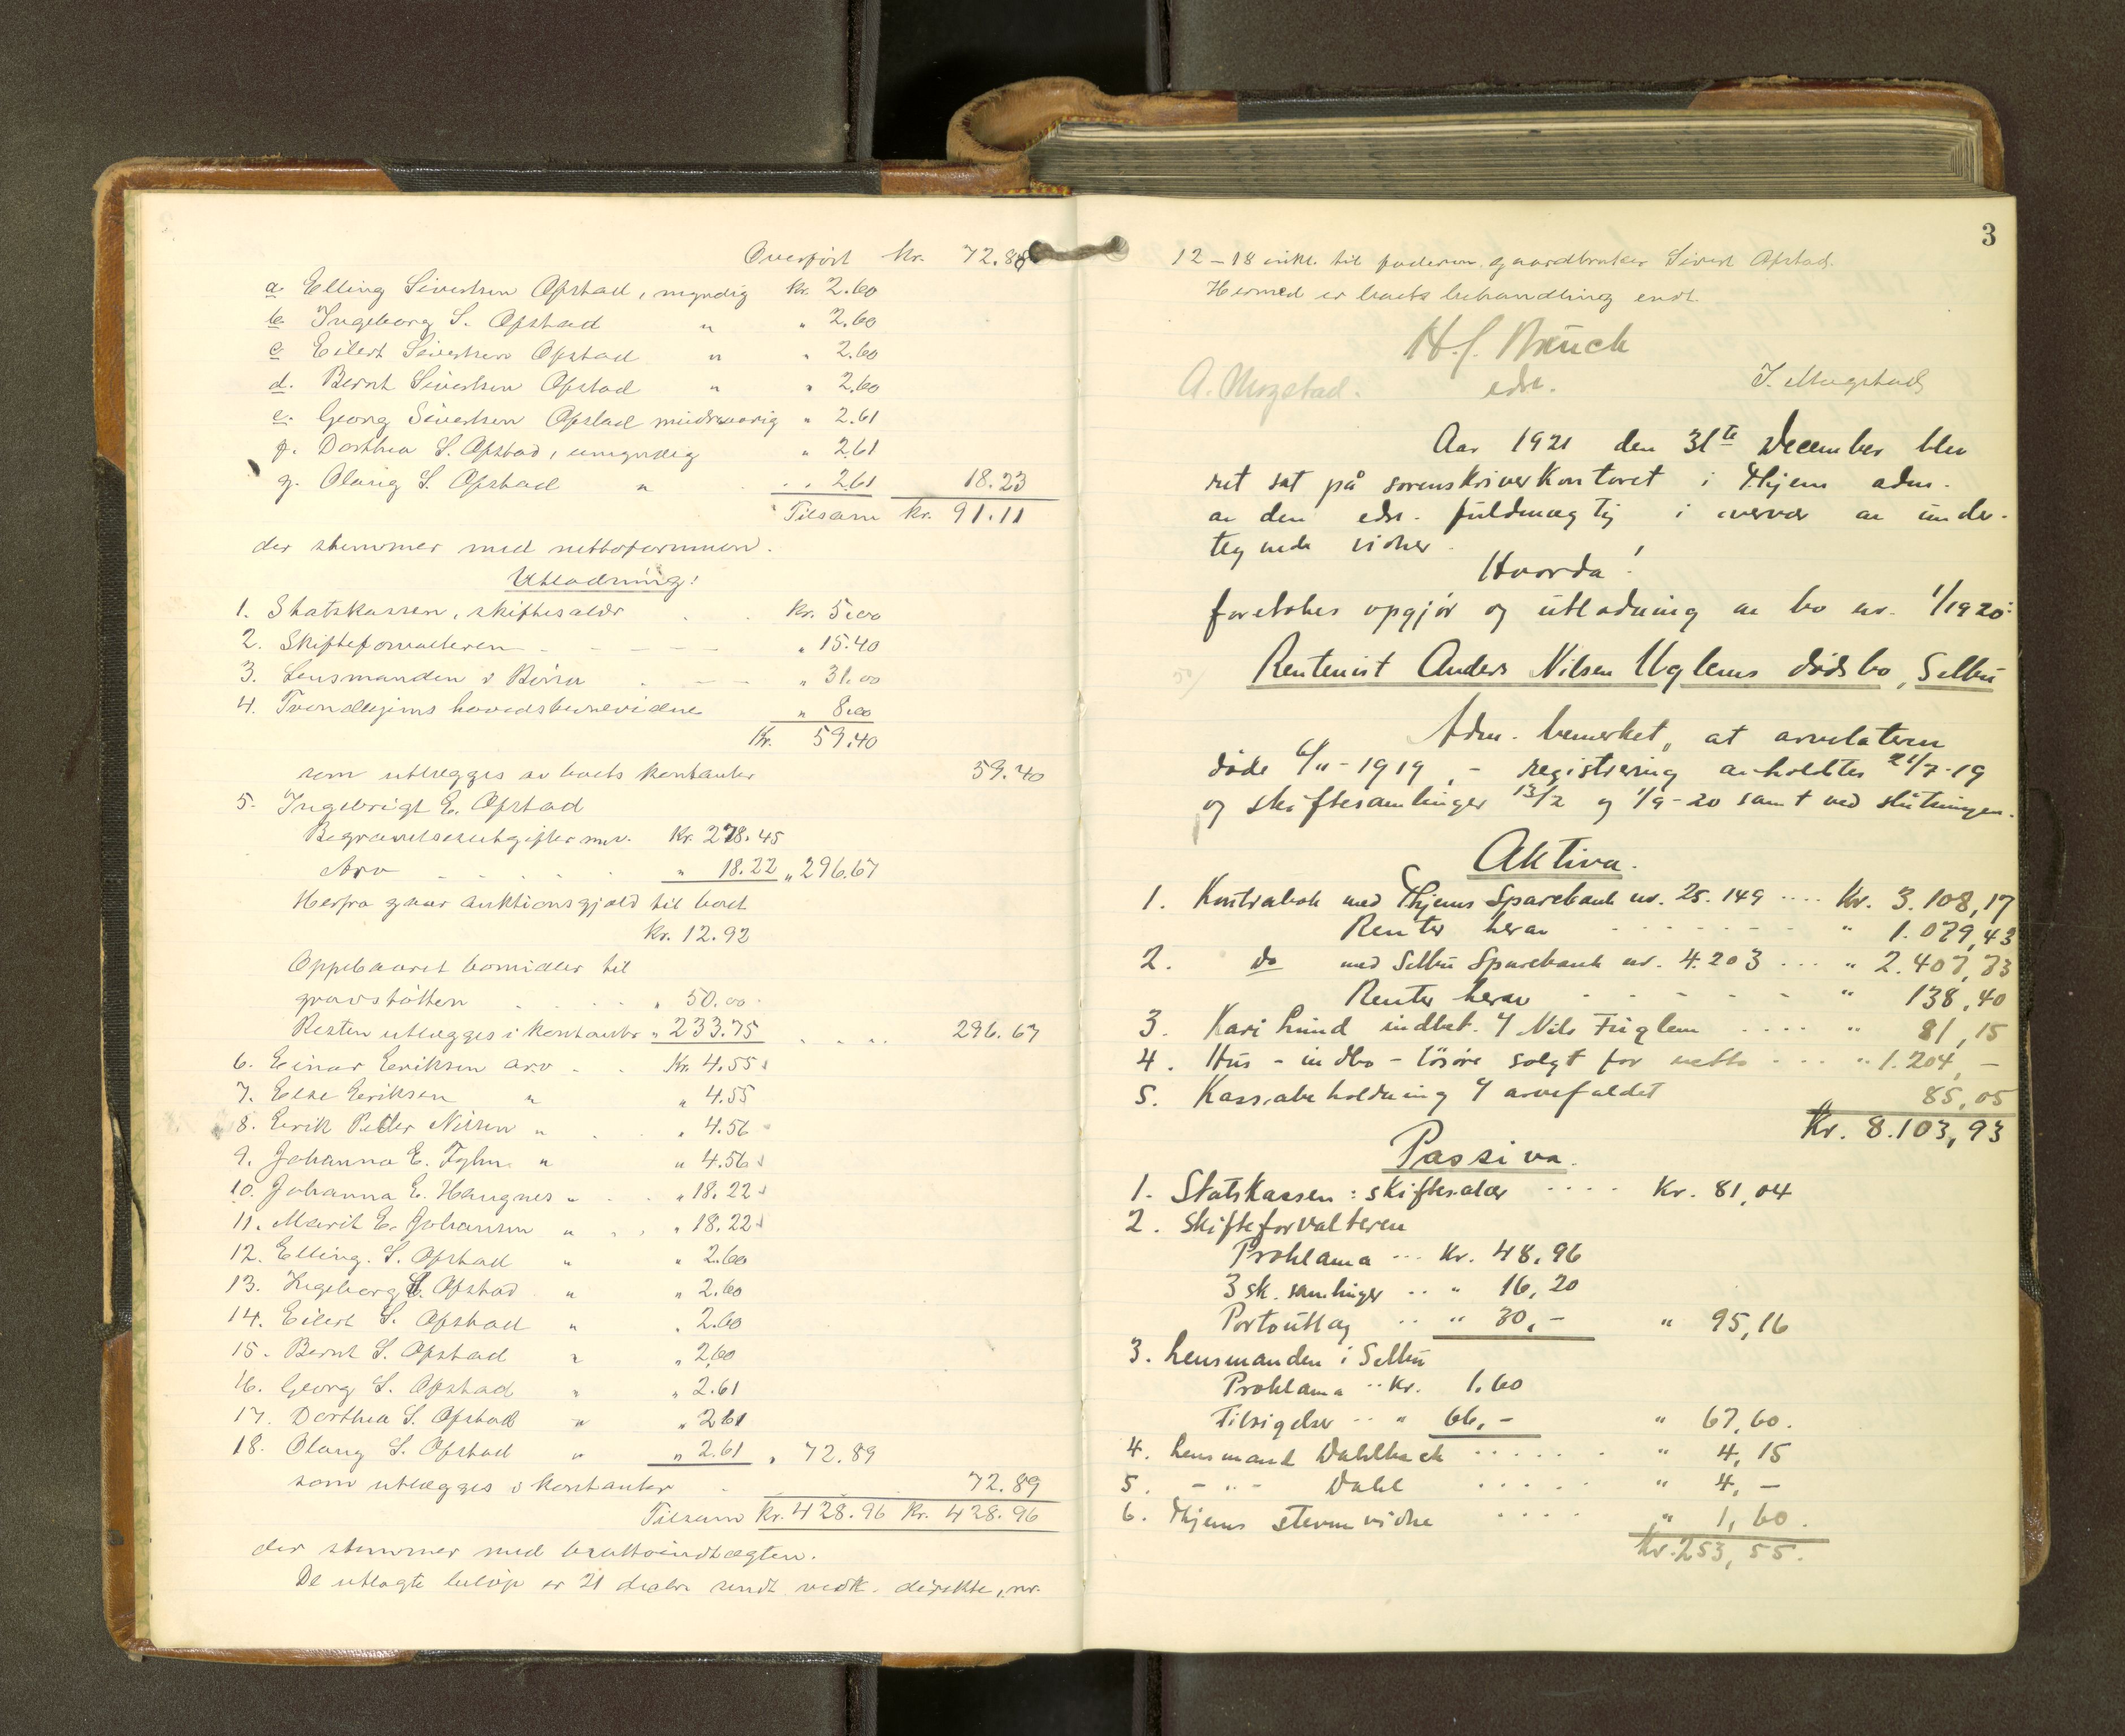 Overført kr. 72.88
a. Elling Sivertsen Opstad, myndig kr. 2.60
b. Ingeborg S. Opstad " " 2.60
c. Eilert Sivertsen Opstad " " 2.60
d. Bernt Sivertsen Opstad " " 2.60
e. Georg Sivertsen Opstad mindreaarig " 2.61
f. Dorthea S. Opstad, umyndig " 2.61
g. Olaug S. Opstad " " 2.61 18.23
Tilsam kr. 91.11
der stemmer med nettoformuen.
Utlodning:
1. Statskassen, skiftesalær kr. 5.00
2. Skifteforvalteren " 15.40
3. Lensmanden i " 31.00
4. Trondhjems hovedstevnevidne " 8.00
Kr. 59.40
som utlægges av boets kontanter 59.40
5. Ingebrigt E. Opstad
Begravelsesutgifter m.v. Kr. 278.45
Arv " 18.22 " 296.67
Herfra gaar auktionsgjæld til boet
kr. 12.92
Oppebaaret bomidler til
gravstøtten " 50.00
Resten utlægges i kontanter " 233.75 296.67
6. Einar Eriksen arv Kr. 4.55
7. Else Eriksen " " 4.55
8. Erik Peder Nilsen " " 4.56
9. Johanna E. " " 4.56
10. Johanna E. Haugnes " " 18.22
11. Marit E. Johansen " " 18.22
12. Elling. S. Opstad " " 2.60
13. Ingeborg S. Opstad " " 2.60
14. Eilert S. Opstad " " 2.60
15. Bernt S. Opstad " " 2.60
16. Georg S. Opstad " " 2.61
17. Dorthea S. Opstad " " 2.61
18. Olaug S. Opstad " " 2.61 " 72.89
som utlægges i kontanter 72.89
Tilsam kr. 428.96 Kr. 428.96
der stemmer med bruttoindtægten.
De utlagte beløp er 21 decbr. sendt vedk. direkte, nr.
3
12 – 18 inkl. til faderen, gaardbruker Sivert Opstad.
Hermed er boets behandling endt.
edsv.
A. Mogstad. J. Mogstad
Aar 1921 den 31te December blev
ret sat på sorenskriverkontoret i Thjem adm.
av den edsv. fuldmægtig i overvær av under-
tegnede vidner.
Hvorda!
foretokes opgjør og utlodning av bo nr. 1/1920:
Rentenist Anders Nilsen Uglems dødsbo, Selbu
Adm. bemerket, at arvelateren
døde 6/11-1919, - registrering avholdtes 21/7-19
og skiftesamlinger 13/2 og 1/9-20 samt ved slutningen.
Aktiva.
1. Kontrabok med Thjems Sparebank nr. 25.149 .... Kr. 3.108,17
Renter herav " 1.079,43
2. do med Selbu Sparebank nr. 4.203 ... " 2.407,73
Renter herav " 138,40
3. Kari Lund indbet. f Nils Fuglem .... " 81,15
4. Hus-indbo-løsøre solgt for netto ... " 1.204,–
5. Kassabeholdning f arvefaldet 85,05
Kr. 8.103,93
Passiva.
1. Statskassen: skiftesalær .... Kr. 81,04
2. Skifteforvalteren
Proklama ... Kr. 48,96
3 sk. samlinger .. " 16,20
Portoutlæg .. " 30,– " 95,16
3. Lensmanden i Selbu
Proklama .. Kr. 1,60
Tilsigelser .. " 66,– " 67,60.
4. Lensmand Dahlback ..... " 4,15
5. – " – Dahl ..... " 4,–
6. Thjems stevnevidne .... " 1,60.
Kr. 253,55.